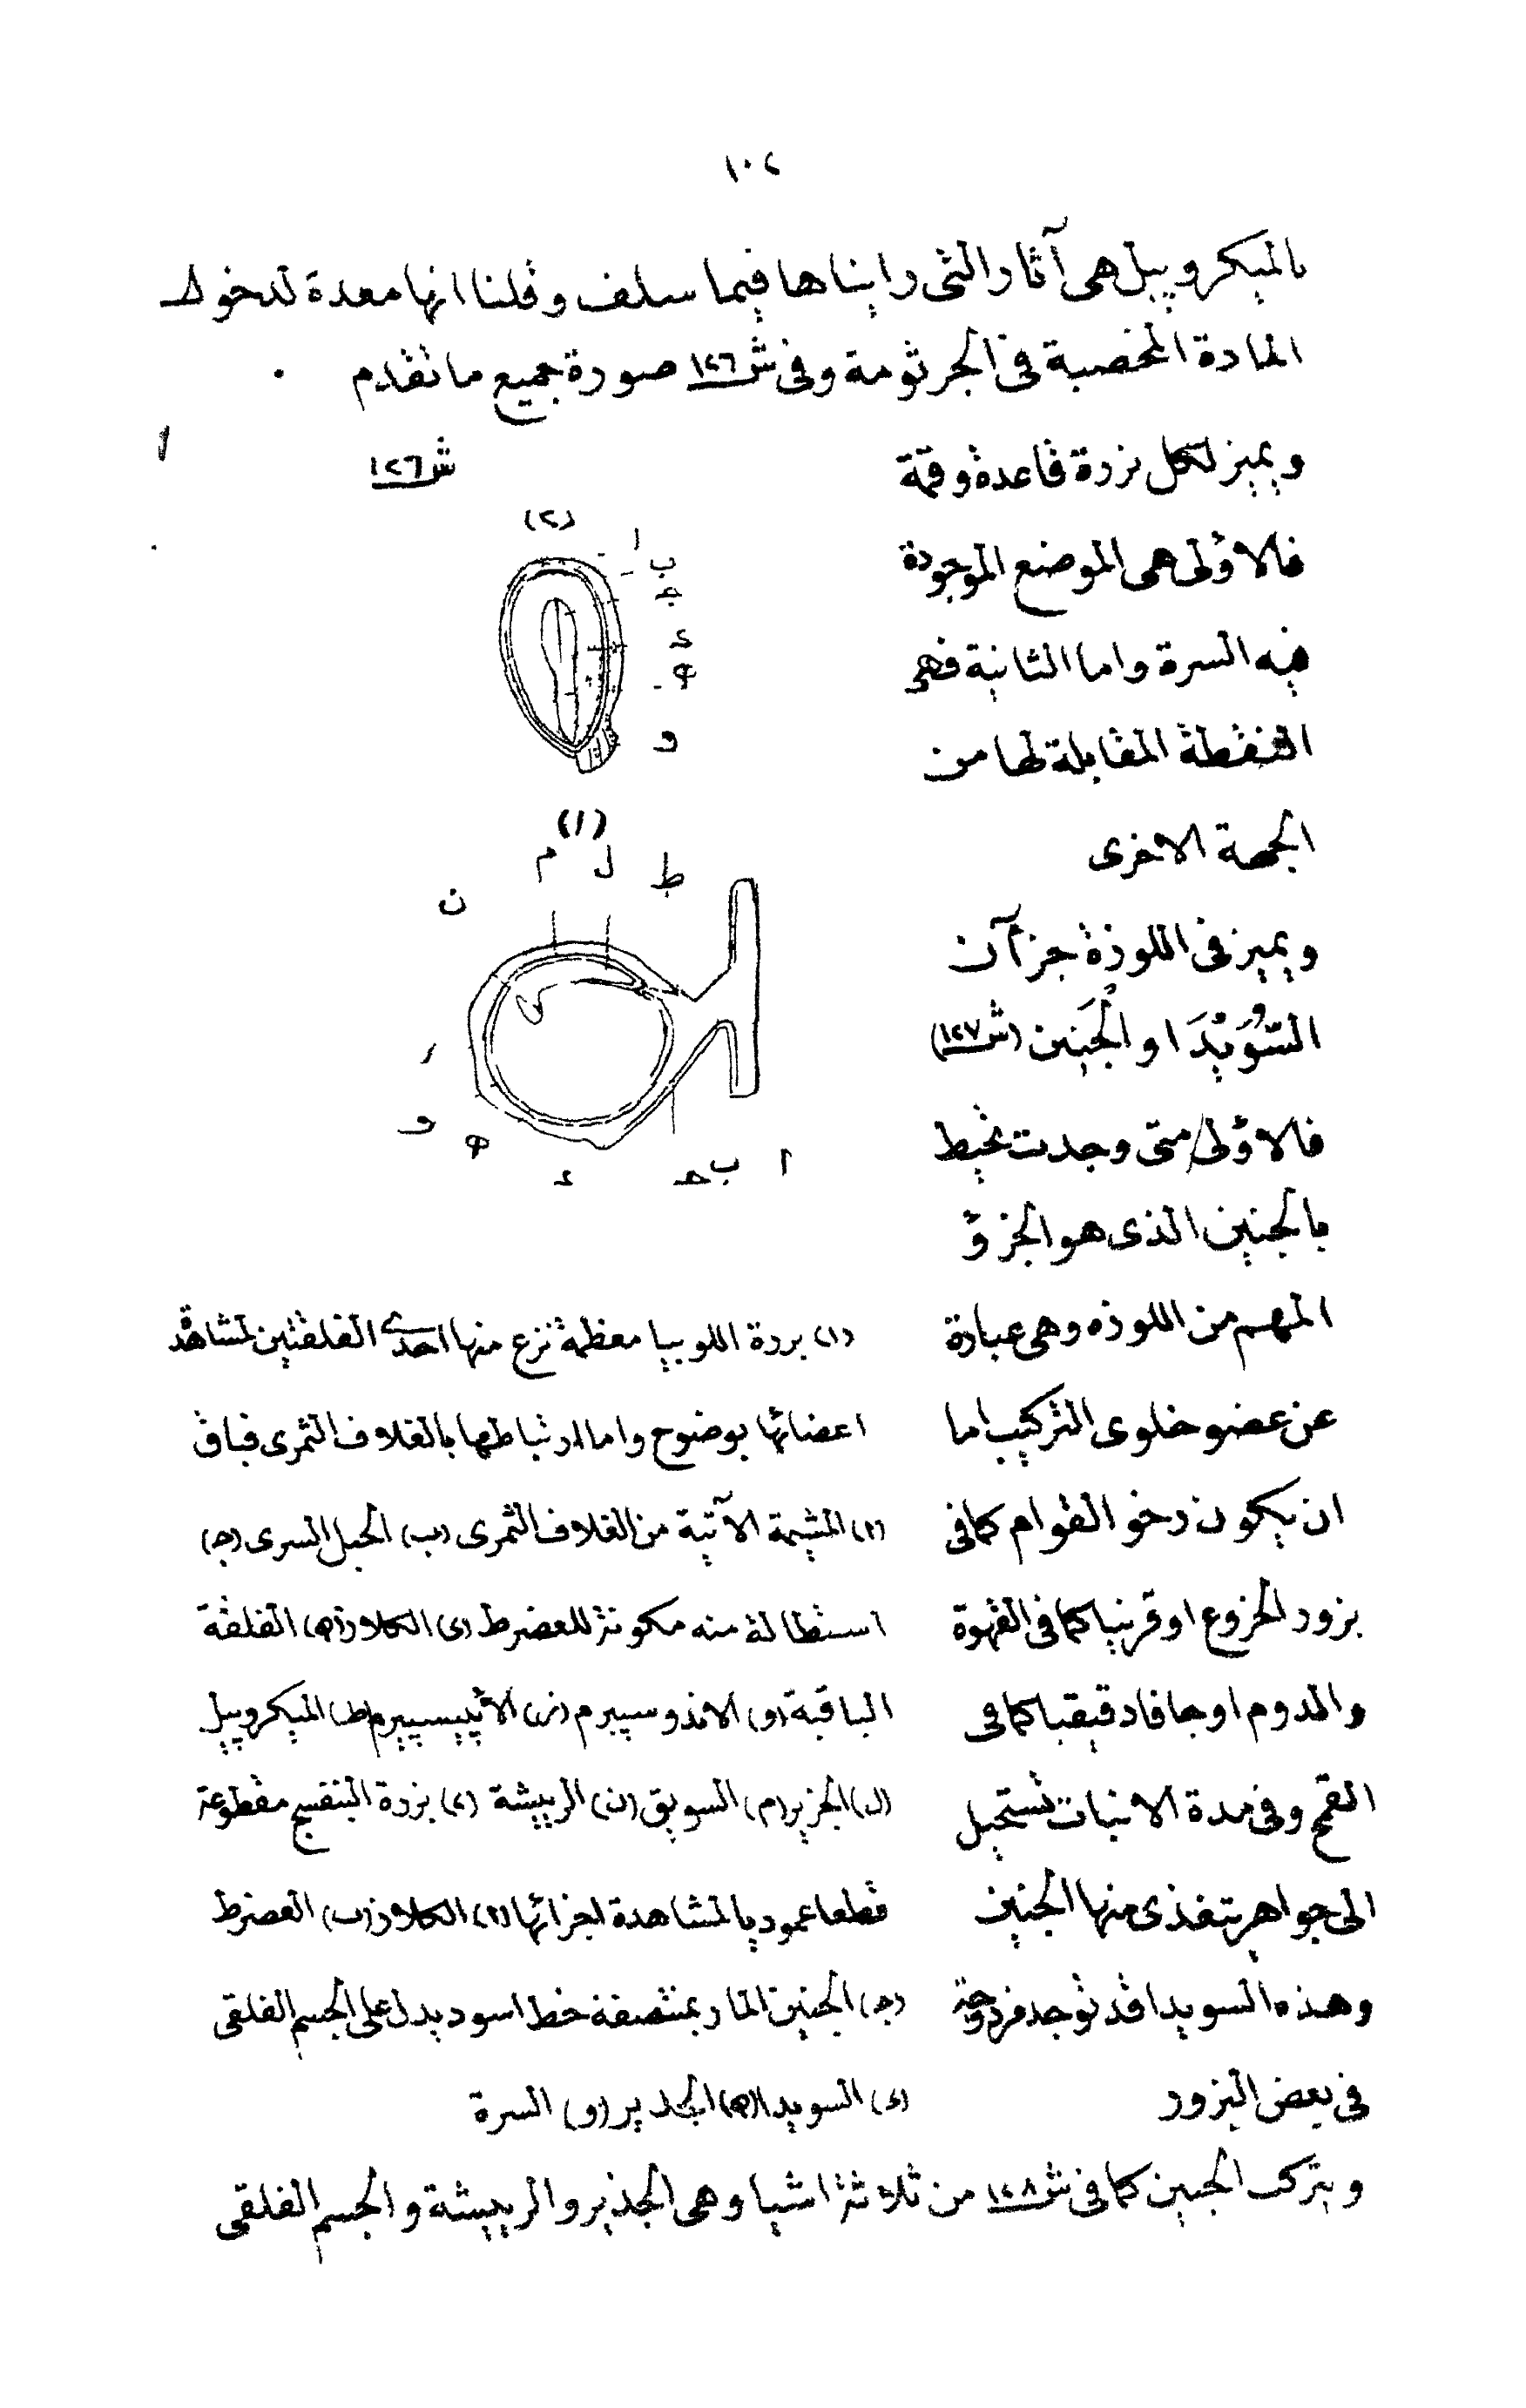 ١٠٢
بالميكروپيل هى آثار التى رايناها فيما سلف وقلنا انها معدة لدخول
المادة المخصبة فى الجرثومة وفى ش١٢٦ صورة جميع ما تقدم
ويميز لكل بزرة قاعدة وقمة
فالاولى هى الموضع الموجودة
فيه السرة واما الثانية فهى
النقطة المقابلة لها من
الجهة الاخرى
ويميز فى اللوزة جزآن
السُّوَيْدَا والجَنين (ش١٢٧)
فالاولى متى وجدت تحيط
بالجنين الذى هو الجزؤ
المهم من اللوزه وهى عبارة
عن عضو خلوى التركيب اما
ان يكون رخو القوام كما فى
بزور الخروع او قرنيا كما فى القهوة
والمدوم او جافا دقيقيا كما فى
القمح وفى مدة الانبات تستحيل
الى جواهر يتغذى منها الجنين
وهذه السويدا قد توجد مزدوجة
فى بعض البزور
ش١٢٦
(٢)
ا
ب
ج
د
ه
و
(١)
م ل ط
ن
ز
و
ه
د
ج
ب
ا
(١) بزرة اللوبيا معظمة نزع منها احدى الفلقتين لمشاهدة
اعضائها بوضوح واما ارتباطها بالغلاف الثمرى فباق
(ا) المشيمة الآتية من الغلاف الثمرى (ب) الحبل السرى (ج)
استطالة منه مكونة للعضرط (د) الكلاز (ه) الفلقة
الباقية (و) الاندوسپيرم (ز) الاپيسپيرم (ط) الميكروپيل
(ل) الجزير (م) السويق (ن) الريشة (٢) بزرة البنفسج مقطوعة
قطعا عموديا لمشاهدة اجزائها (ا) الكلاز (ب) العضرط
(ج) الجنين المار بمنتصفه خط اسود يدل على الجسم الفلقى
(د) السويدا (ه) الجذير (و) السرة
ويتركب الجنين كما فى ش١٢٨ من ثلاثة اشيا وهى الجذير والريشة والجسم الفلقى